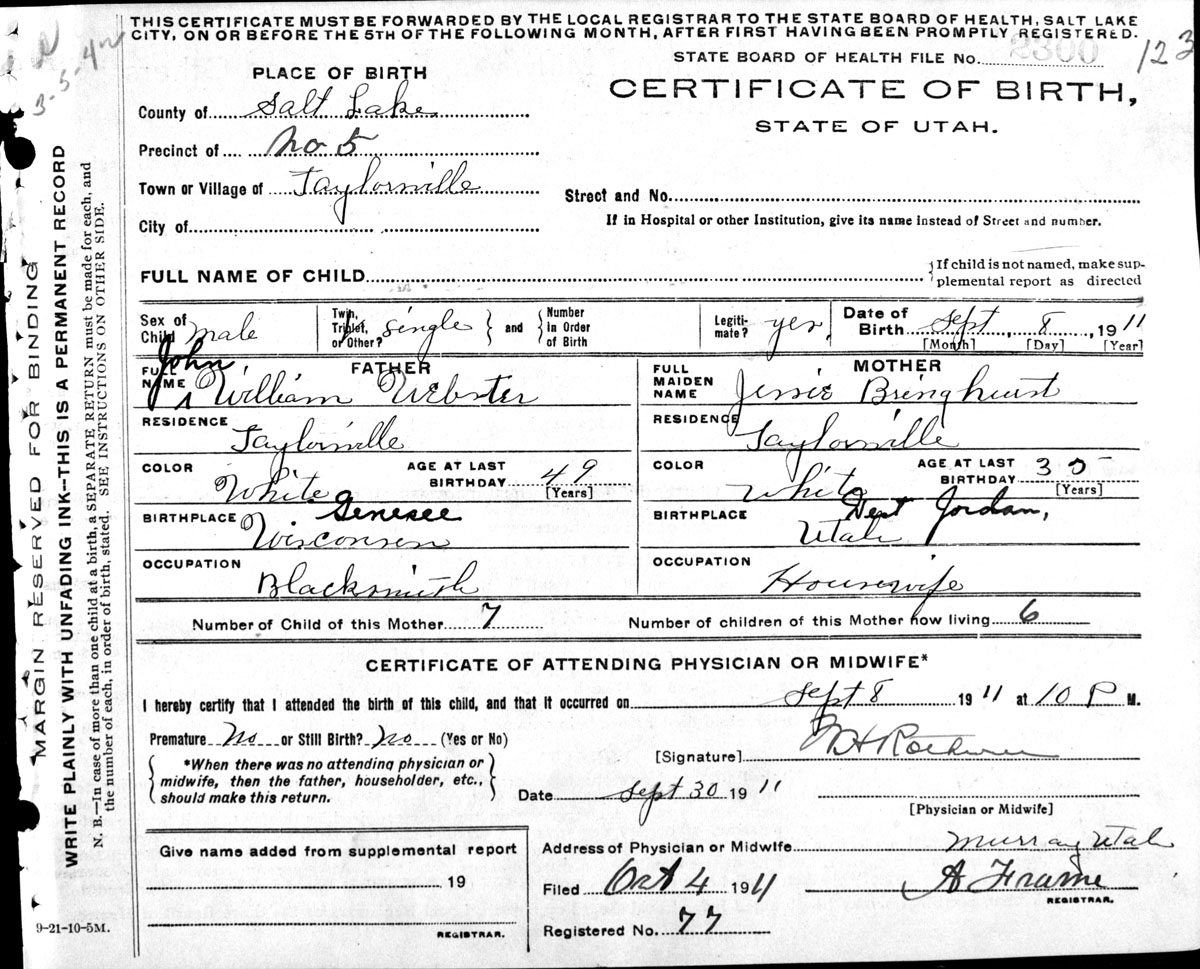 THIS CERTIFICATE MUST BE FORWARDED BY THE LOCAL REGISTRAR TO THE STATE BOARD OF HEALTH, SALT LAKE
CITY, ON OR BEFORE THE 5TH OF THE FOLLOWING MONTH, AFTER FIRST HAVING BEEN PROMPTLY REGISTERED.
STATE BOARD OF HEALTH FILE No. 2300 123
PLACE OF BIRTH
CERTIFICATE OF BIRTH,
STATE OF UTAH.
County of Salt Lake
Precinct of No 5
Town or Village of Taylorsville
Street and No.
City of
If in Hospital or other Institution, give its name instead of Street and number.
FULL NAME OF CHILD
If child is not named, make sup-
plemental report as directed
Sex of
Child male
Twin,
Triplet,
or Other? single
and
Number
in Order
of Birth
Legiti-
mate? yes
Date of
Birth Sept 8, 1911
[Month] [Day] [Year]
FATHER
FULL
NAME John William Webster
MOTHER
FULL
MAIDEN
NAME Jessie Bringhurst
RESIDENCE Taylorsville
RESIDENCE Taylorsville
COLOR White
AGE AT LAST
BIRTHDAY 49
[Years]
COLOR White
AGE AT LAST
BIRTHDAY 35
[Years]
BIRTHPLACE Genesee
Wisconsin
BIRTHPLACE West Jordan,
Utah
OCCUPATION
Blacksmith
OCCUPATION
Housewife
Number of Child of this Mother 7
Number of children of this Mother now living 6
CERTIFICATE OF ATTENDING PHYSICIAN OR MIDWIFE*
I hereby certify that I attended the birth of this child, and that it occurred on Sept 8 1911 at 10 P M.
Premature No or Still Birth? No (Yes or No)
*When there was no attending physician or
midwife, then the father, householder, etc.,
should make this return.
[Signature]
Date Sept 30 1911
[Physician or Midwife]
Give name added from supplemental report
19
REGISTRAR.
Address of Physician or Midwife Murray Utah
Filed Oct 4 1911
A Frame
REGISTRAR.
Registered No. 77
9-21-10-5M.
MARGIN RESERVED FOR BINDING
WRITE PLAINLY WITH UNFADING INK—THIS IS A PERMANENT RECORD
N. B.—In case of more than one child at a birth, a SEPARATE RETURN must be made for each, and
the number of each, in order of birth, stated. SEE INSTRUCTIONS ON OTHER SIDE.